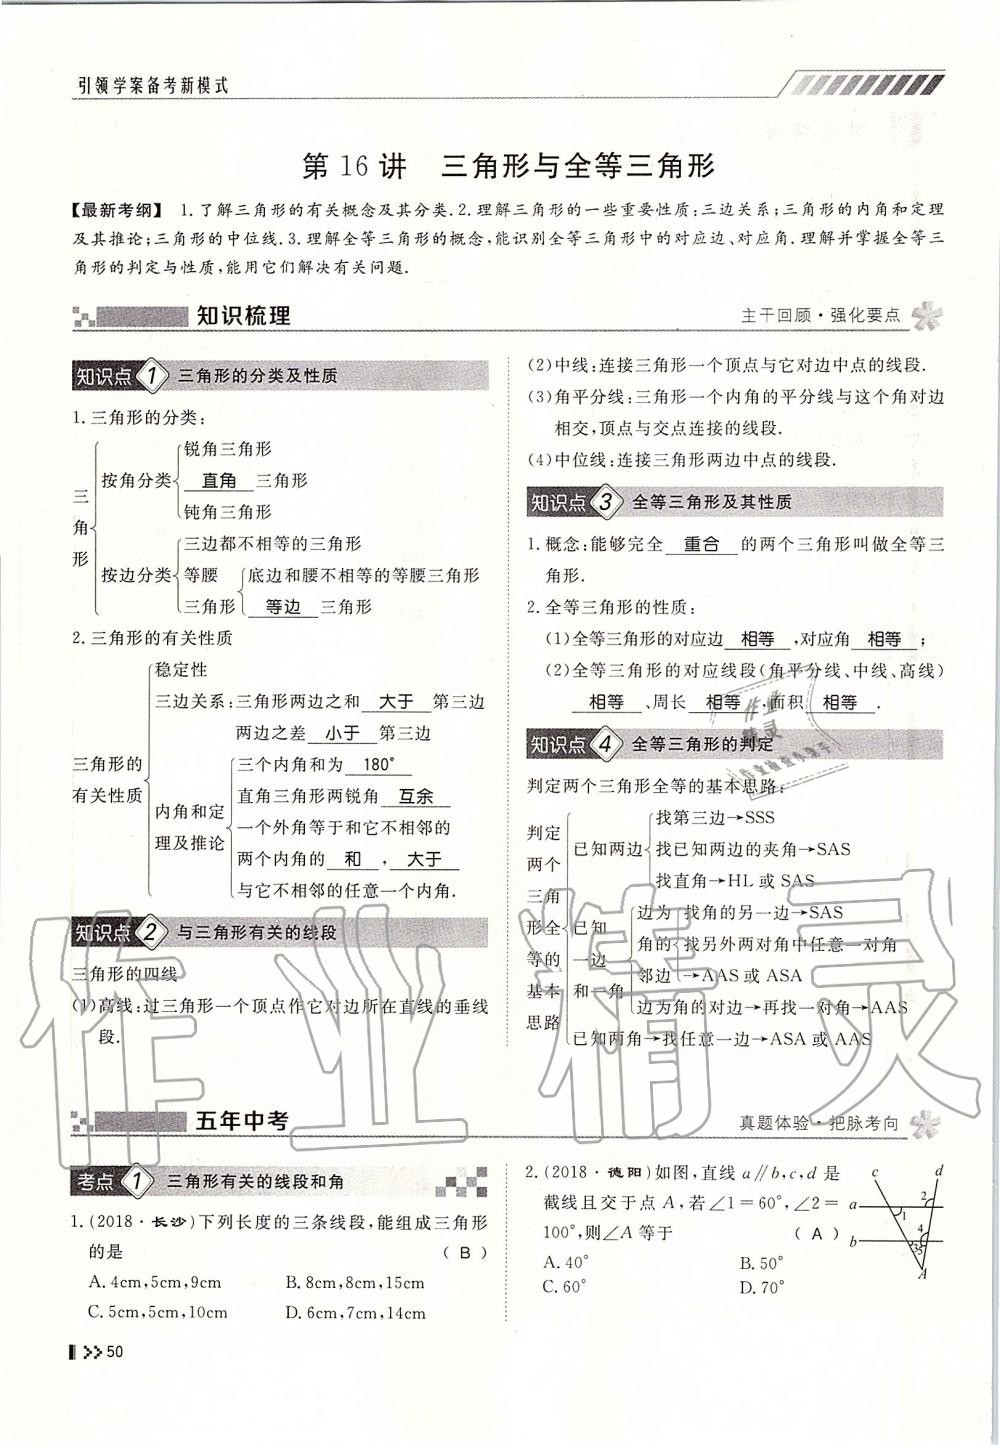 引领学案备考新模式
第16讲 三角形与全等三角形
【最新考纲】 1.了解三角形的有关概念及其分类.2.理解三角形的一些重要性质:三边关系;三角形的内角和定理
及其推论;三角形的中位线.3.理解全等三角形的概念,能识别全等三角形中的对应边、对应角.理解并掌握全等三
角形的判定与性质,能用它们解决有关问题.
知识梳理
主干回顾·强化要点
知识点 1 三角形的分类及性质
1.三角形的分类:
三角形
按角分类
锐角三角形
直角 三角形
钝角三角形
按边分类
三边都不相等的三角形
等腰
三角形
底边和腰不相等的等腰三角形
等边 三角形
2.三角形的有关性质
三角形的
有关性质
稳定性
三边关系:三角形两边之和 大于 第三边
两边之差 小于 第三边
内角和定
理及推论
三个内角和为 180°
直角三角形两锐角 互余
一个外角等于和它不相邻的
两个内角的 和 , 大于
与它不相邻的任意一个内角.
知识点 2 与三角形有关的线段
三角形的四线
(1)高线:过三角形一个顶点作它对边所在直线的垂线
段.
(2)中线:连接三角形一个顶点与它对边中点的线段.
(3)角平分线:三角形一个内角的平分线与这个角对边
相交,顶点与交点连接的线段.
(4)中位线:连接三角形两边中点的线段.
知识点 3 全等三角形及其性质
1.概念:能够完全 重合 的两个三角形叫做全等三
角形.
2.全等三角形的性质:
(1)全等三角形的对应边 相等 ,对应角 相等 ;
(2)全等三角形的对应线段(角平分线、中线、高线)
相等 、周长 相等 ,面积 相等 .
知识点 4 全等三角形的判定
判定两个三角形全等的基本思路:
判定
两个
三角
形全
等的
基本
思路
已知两边
找第三边→SSS
找已知两边的夹角→SAS
找直角→HL或SAS
已知
一边
和一角
边为
角的
邻边
找角的另一边→SAS
找另外两对角中任意一对角
→AAS或ASA
边为角的对边→再找一对角→AAS
已知两角→找任意一边→ASA或AAS
五年中考
真题体验·把脉考向
考点 1 三角形有关的线段和角
1.(2018·长沙)下列长度的三条线段,能组成三角形
的是 ( B )
A.4cm,5cm,9cm B.8cm,8cm,15cm
C.5cm,5cm,10cm D.6cm,7cm,14cm
2.(2018·德阳)如图,直线a∥b,c,d是
截线且交于点A,若∠1=60°,∠2=
100°,则∠A等于 ( A )
A.40° B.50°
C.60° D.70°
c d
2
a
1
4
b
3 5
A
50
作业精灵
作业
精灵